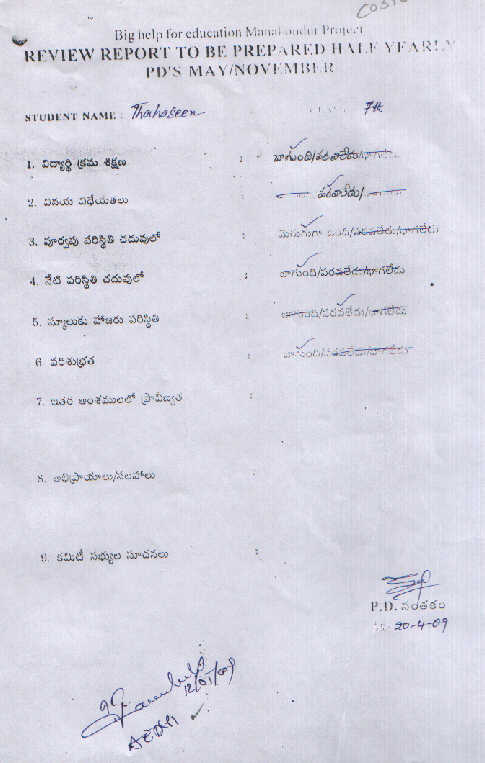 Big help for education Manakondur Project
REVIEW REPORT TO BE PREPARED HALF YEARLY
PD'S MAY/NOVEMBER
STUDENT NAME : Thahaseen 7th
1. విద్యార్థి క్రమ శిక్షణ : బాగుంది/పరవాలేదు/బాగలేదు
2. వినయ విధేయతలు పరవాలేదు/
3. పూర్వపు పరిస్థితి చదువులో : మెరుగుగా ఉంది/పరవాలేదు/బాగలేదు
4. నేటి పరిస్థితి చదువులో : బాగుంది/పరవలేదు/బాగలేదు
5. స్కూలుకు హాజరు పరిస్థితి : బాగుంది/పరవలేదు/బాగలేదు
6. పరిశుభ్రత బాగుంది/పరవలేదు/బాగలేదు
7. ఇతర అంశములలో ప్రావీణ్యత :
8. అభిప్రాయాలు/సలహాలు :
9. కమిటీ సభ్యుల సూచనలు :
P.D. సంతకం
20-4-09